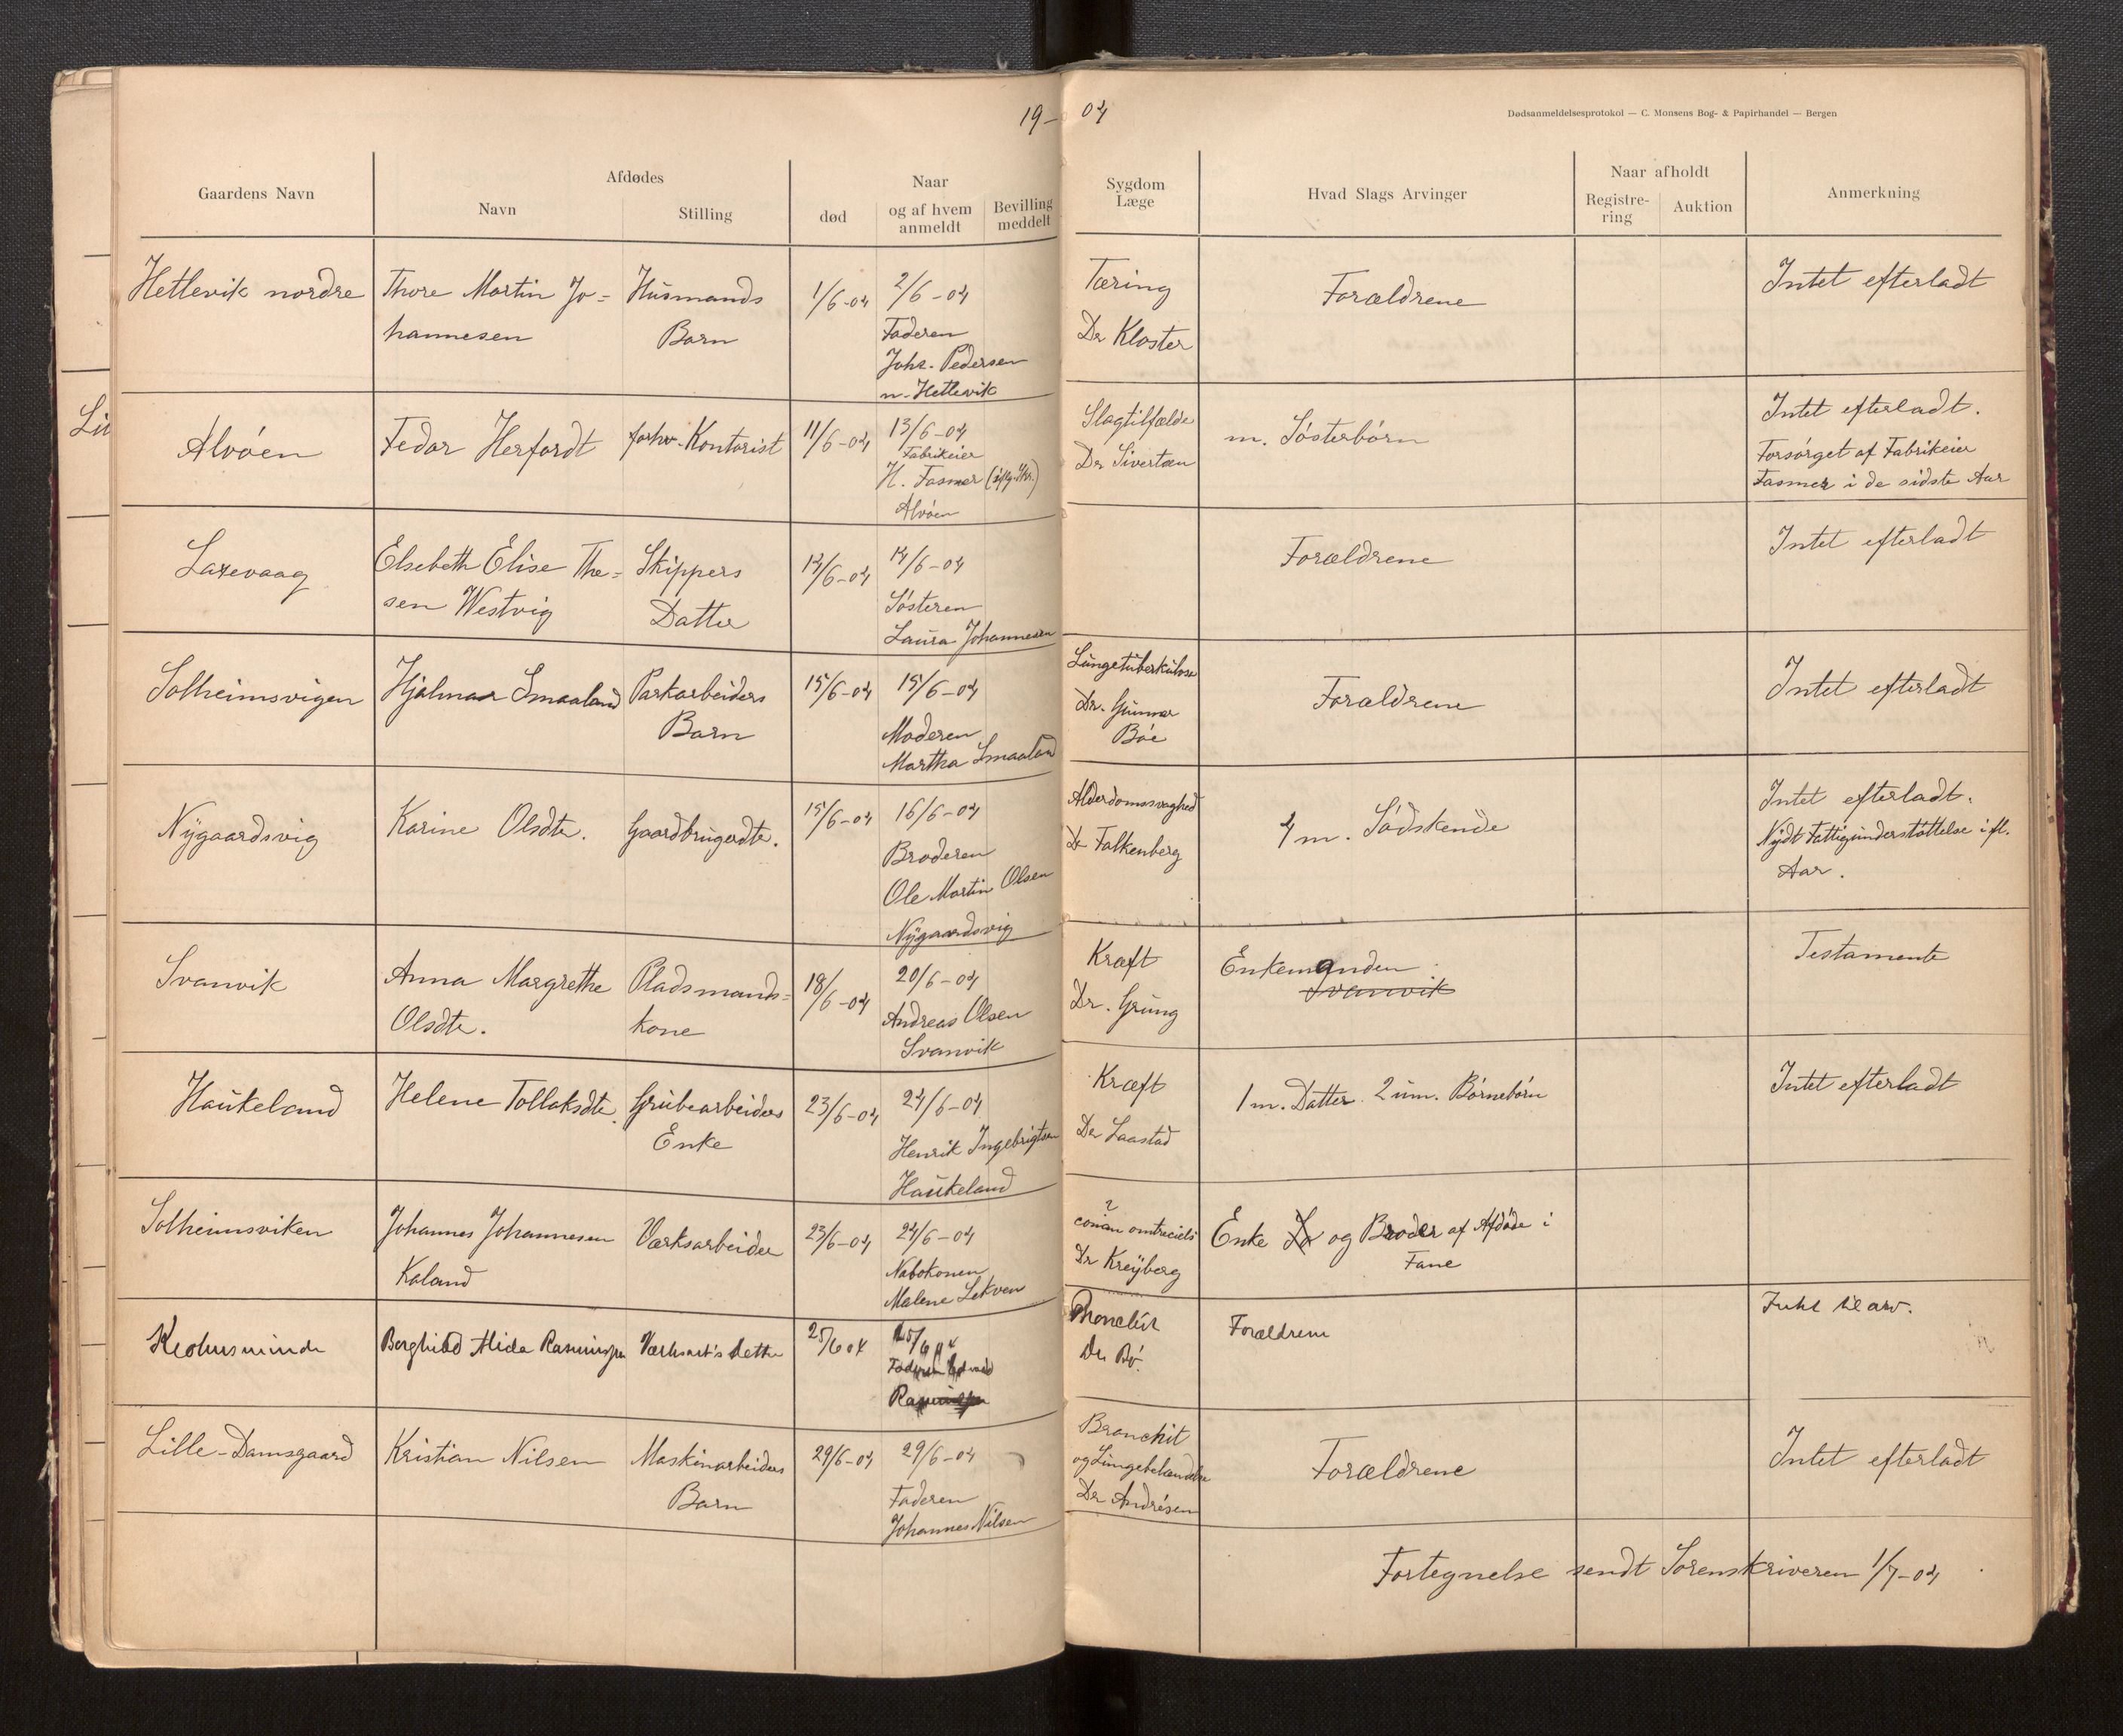 19-04
Dødsanmeldelsesprotokol — C. Monsens Bog- & Papirhandel — Bergen
Gaardens Navn
Afdødes
Navn
Stilling
død
Naar
og af hvem
anmeldt
Bevilling
meddelt
Sygdom
Læge
Hvad Slags Arvinger
Naar afholdt
Registre-
ring
Auktion
Anmerkning
Hetlevik nordre
Thore Martin Jo=
hannesen
Husmands
Barn
1/6-04
2/6-04
Faderen
Johs. Pedersen
n. Hetlevik
Tæring
Dr Kloster
Forældrene
Intet efterladt
Lit
Alvöen
Fedor Herfordt
forhv. Kontorist
11/6-04
13/6-04
Fabrikeier
H. Fasmer (iflg. Skr.)
Alvöen
Slagtilfælde
Dr Sivertsen
m. Søsterbørn
Intet efterladt.
Forsørget af Fabrikeier
Fasmer i de sidste Aar
Laxevaag
Elsebeth Elise The=
sen Westvig
Skippers
Datter
14/6-04
14/6-04
Søsteren
Laura Johannesen
Forældrene
Intet efterladt
Solheimsvigen
Hjalmar Smaaland
Parkarbeiders
Barn
15/6-04
15/6-04
Moderen
Martha Smaaland
Lungetuberkulose
Dr. Gunnar
Bøe
Forældrene
Intet efterladt
Nygaardsvig
Karine Olsdtr.
Gaardbrugerdtr.
15/6-04
16/6-04
Broderen
Ole Martin Olsen
Nygaardsvig
Alderdomssvaghed
Dr Falkenberg
4 m. Sødskende
Intet efterladt.
Nydt Fattigunderstøttelse i fl.
Aar.
Svanvik
Anna Margrethe
Olsdtr.
Pladsmands=
kone
18/6-04
20/6-04
Andreas Olsen
Svanvik
Kræft
Dr. Grung
Enkemanden
Svanvik
Testamente
Haukeland
Helene Tollaksdtr.
Grubearbeiders
Enke
23/6-04
24/6-04
Henrik Ingebrigtsen
Haukeland
Kræft
Dr Laastad
1 m. Datter. 2 um. Børnebørn
Intet efterladt
Solheimsviken
Johannes Johannesen
Kaland
Værksarbeider
23/6-04
24/6-04
Nabokonen
Malene Lekven
?
Dr Kreyberg
Enke og Broder af Afdøde i
Fane
Borghild Alida Rasmussen
Værksarb's datter
25/6 04
25/6 04
Faderen
Dr. Bø.
Forældrene
Intet til arv.
Lille-Damsgaard
Kristian Nilsen
Maskinarbeiders
Barn
29/6-04
29/6-04
Faderen
Johannes Nilsen
Bronchit
og Lungebetændelse
Dr Andrésen
Forældrene
Intet efterladt
Fortegnelse sendt Sorenskriveren 1/7-04